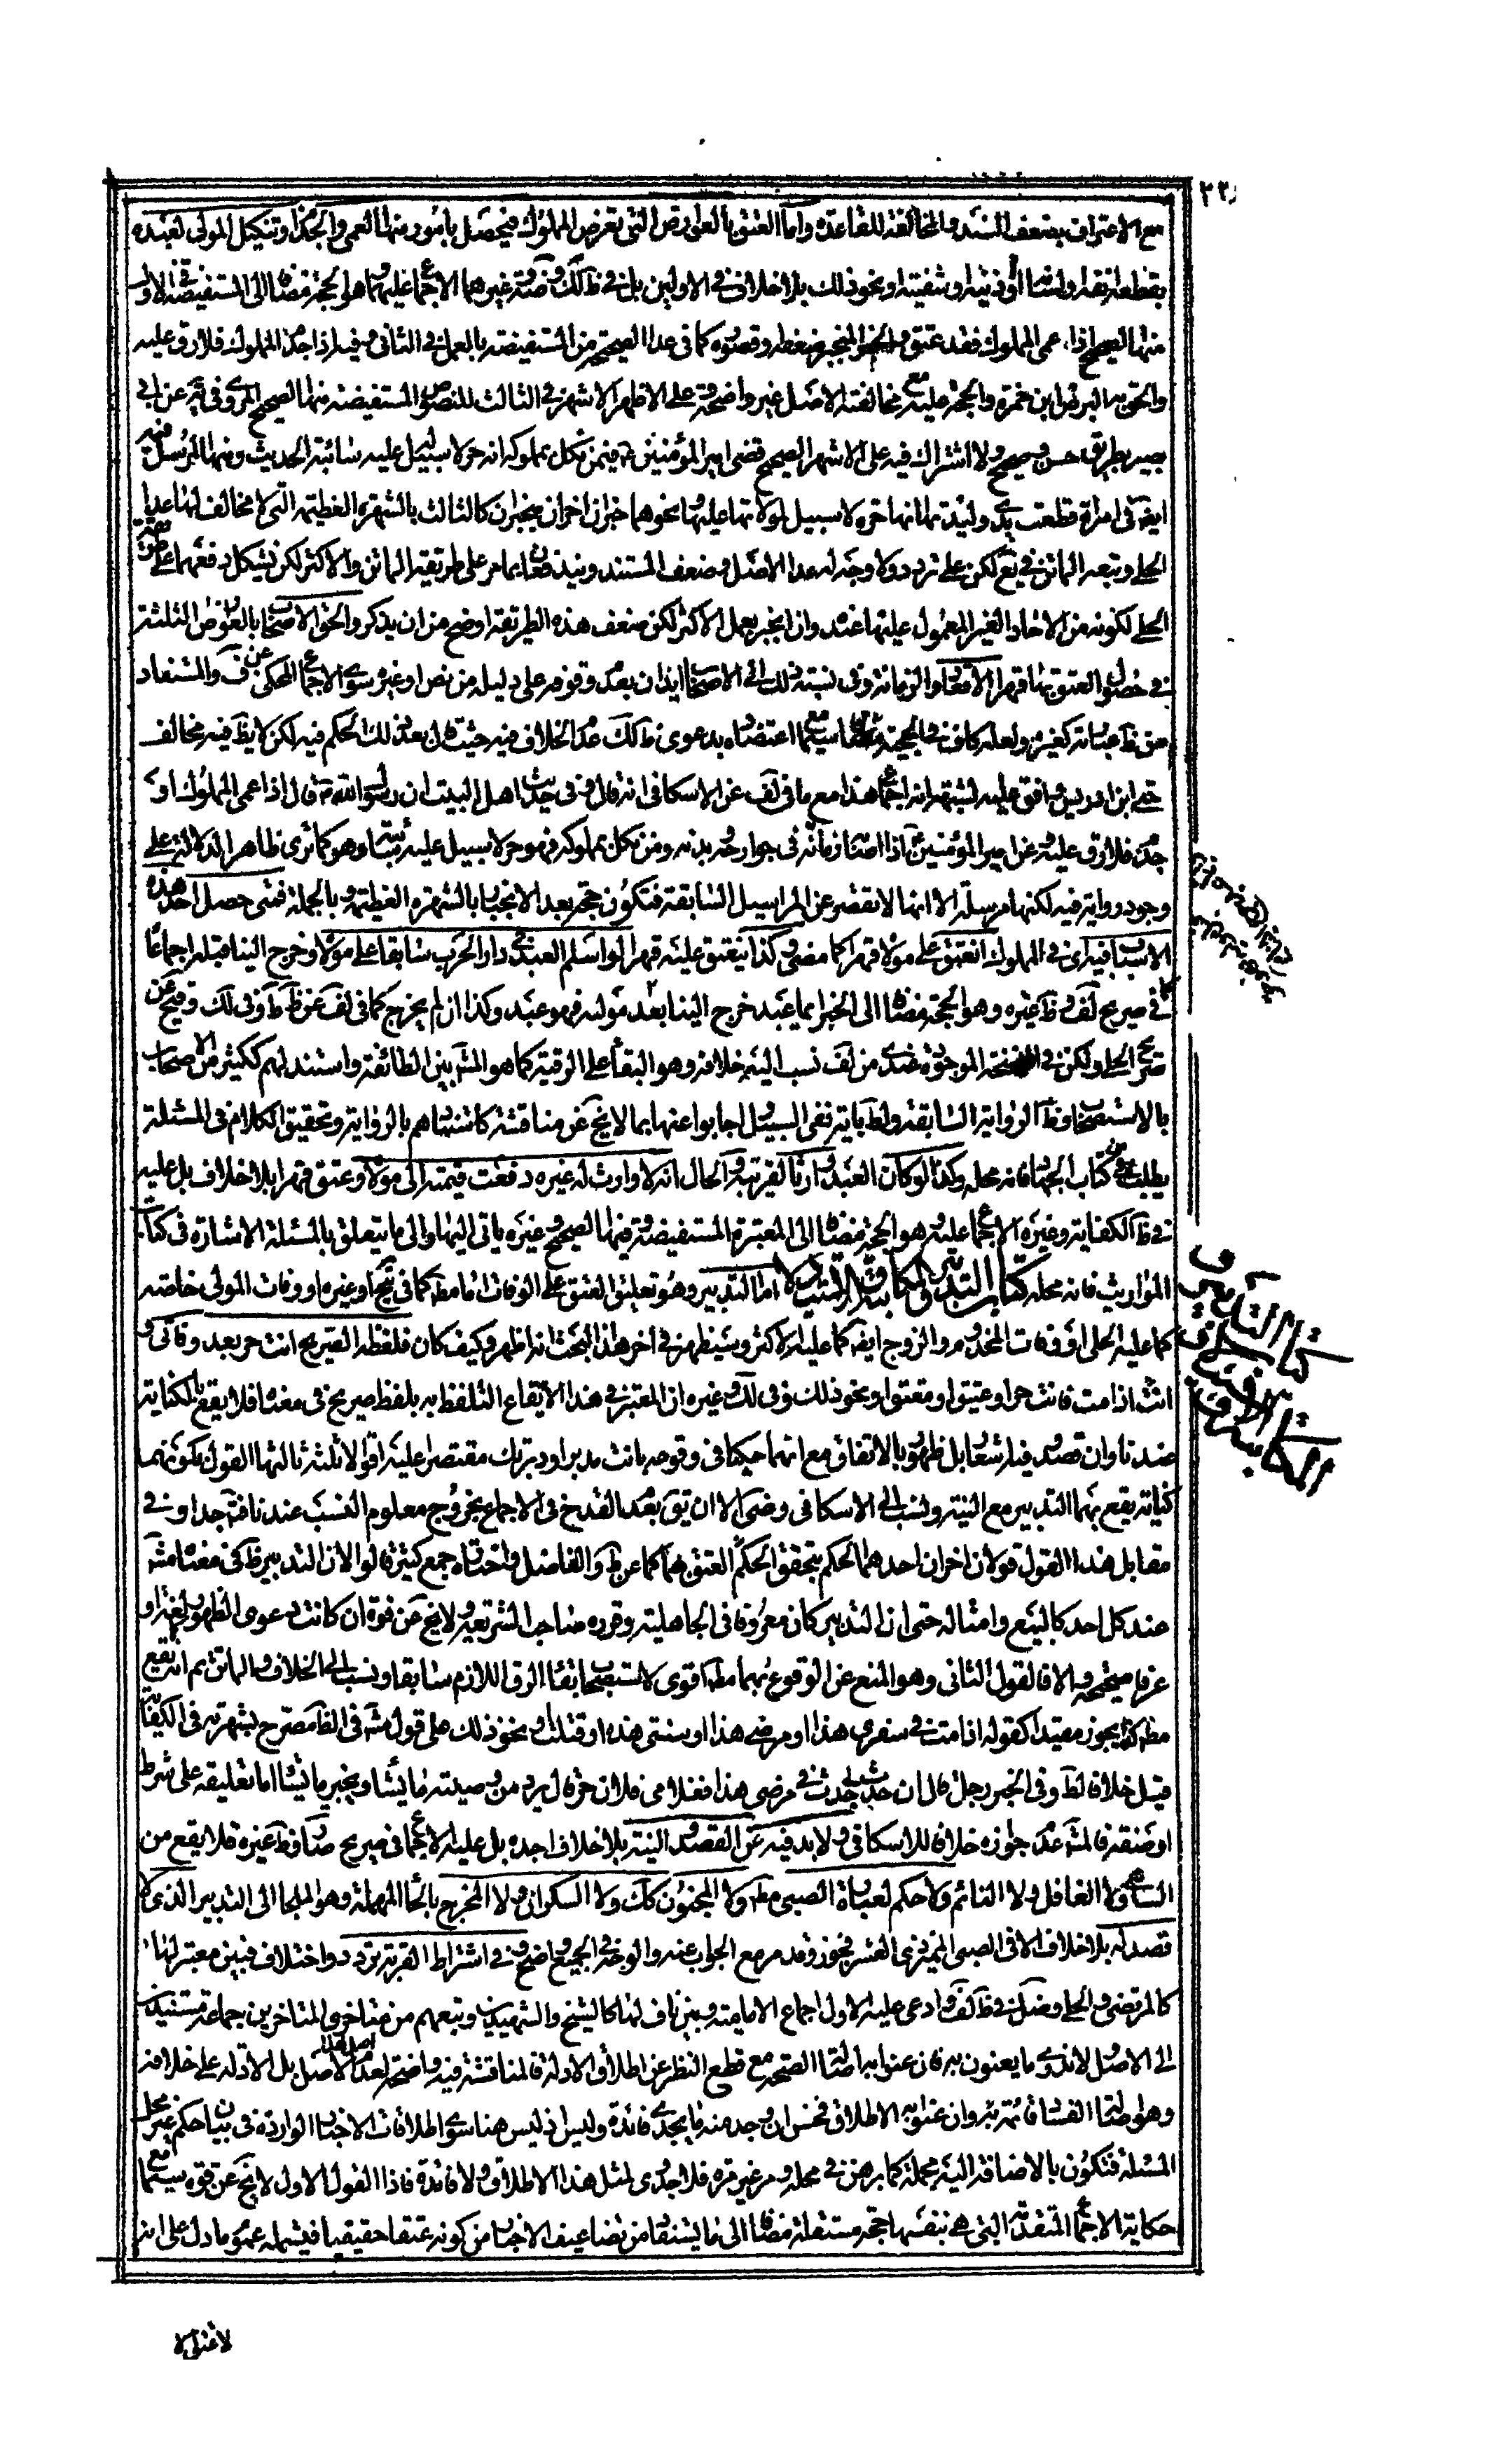 مع الاعتراف بضعف السند والمخالفة للقاعدة واما العتق بالعوارض التي تعرض المملوك فيحصل بامور منها العمى والجذام وتنكيل المولى لعبده
بقطعه انفه او لسانه او اذنيه او شفتيه او نحو ذلك بلا خلاف في الاولين بل في ظ لك وضة وغيرهما الاجماع عليهما وهو الحجة مضافا الى المستفيضة في الاول
منها الصحيح اذا عمى المملوك فقد عتق والخبر المنجبر ضعفه وقصوره كما في عدا الصحيح من المستفيضة بالعمل في الثاني وفيه اذا جذم المملوك فلا رق عليه
والحق به البرص ابن حمزة والحجة عليه مع مخالفته الاصل غير واضحة على الاظهر الاشهر في الثالث للنصوص المستفيضة منها الصحيح المروى في عن ابي
بصير بطريق حسن وصحيح ولا اشتراك فيه على الاشهر الصحيح قضى امير المؤمنين ع فيمن نكل بمملوكه انه حر لا سبيل له عليه سائبة الحديث ومنها المرسل فيه
ايضا في امرأة قطعت يدي وليدتها انها حرة لا سبيل لمولاتها عليها ونحوهما خبران اخران منجبران كالثالث بالشهرة العظيمة التي لا مخالف لها عدا
الحلي وتبعه الماتن في يع لكن على تردد ولا وجه له عدا الاصل وضعف المستند ويندفعان بما مر على طريقة الماتن والاكثر لكن يشكل دفعهما على طريقة
الحلي لكونه من الاخاد الغير المعمول عليها عنده وان انجبر بعمل الاكثر لكن ضعف هذه الطريقة اوضح من ان يذكر والحق الاصحاب بالعوارض الثلثة
في حصول العتق بها قهرا الاقعاد والزمانة وفي نسبة ذلك الى الاصحاب ايذان بعدم وقوفه على دليله من نص او غيره سوى الاجماع المحكي عن ف والمستفاد
من ظ عبارته كغيره ولعله كاف في الحجية سيما مع اعتضاده بدعوى ظ لك عدم الخلاف فيه حيث قال بعد ذلك الحكم فيه لكن لا يظهر فيه مخالف
حتى ابن ادريس وافق عليه لشبهة انه اجماع هذا مع ما في لف عن الاسكافي انه قال وفي حديث اهل البيت ان رسول الله ص قال اذا عمى المملوك او
جذم فلا رق عليه وعن امير المؤمنين ع اذا اصابته زمانة في جوارحه وبدنه ومن نكل بمملوكه فهو حر لا سبيل عليه سائبة وهو كما ترى ظاهر الدلالة على
وجود رواية فيه لكنها مرسلة الا انها لا تقصر عن المراسيل السابقة فتكون حجة بعد الانجبار بالشهرة العظيمة وبالجملة فمتى حصل احد هذه
الاسباب في المملوك انعتق على مولاه قهرا كما مضى وكذا ينعتق عليه قهرا لو اسلم العبد في دار الحرب سابقا على مولاه وخرج الينا قبله اجماعا
كما في صريح لف وظ غيره وهو الحجة مضافا الى الخبر ايما عبد خرج الينا بعد موليه فهو عبد وكذا ان لم يخرج كما في لف عن ط وفي لك وقيح عن
صريح الحلي ولكن في النسخة الموجودة عندي من لف نسب اليه خلافه وهو البقاء على الرقية كما هو المش بين الطائفة واستند لهم ككثير من الاصحاب
بالاستصحاب وظ الرواية السابقة وله باية نفي السبيل واجابوا عنها بما لا يخ عن مناقشة كاستنادهم بالرواية وتحقيق الكلام في المسئلة
يطلب من كتاب الجهاد فانه محله وكذا لو كان العبد وارثا لقريبه والحال انه لا وارث له غيره دفعت قيمته الى مولاه وعتق قهرا بلا خلاف بل عليه
في ظ الكفاية وغيره الاجماع عليه وهو الحجة مضافا الى المعتبرة المستفيضة وفيها الصحيح وغيره ياتي اليها والى ما يتعلق بالمسئلة الاشارة في كتاب
المواريث فانه محله كتاب التدبير والمكاتبة والاستيلاد اما التدبير وهو تعليق العتق على الوفات اما مط كما في يع وغيره او وفات المولى خاصة
كما عليه الحلي او وفات المخدوم والزوج ايضا كما عليه الاكثر وسيظهر في اخر هذا البحث انه اظهر وكيف كان فلفظه الصريح انت حر بعد وفاتي و
انت اذا مت فانت حر او عتيق او معتق او نحو ذلك وفي لك وغيره ان المعتبر في هذا الايقاع التلفظ به بلفظ صريح في معناه فلا يقع بالكناية
عندنا وان قصد فيه اشعار بل ظهور بالاتفاق مع انهما حكيا في وقوعه بانت مدبر او دبرتك مقتصرا عليه اقوالا ثلثة ثالثها القول بكونهما
كناية يقع بهما التدبير مع النية ونسب الى الاسكافي وضى الا ان يقال بعدم القدح في الاجماع بخروج معلوم النسب عندنا فتأمل جدا وفي
مقابل هذا القول قولان اخران احدهما الحكم بتحقق الحكم العتق بهما كما عن ط والفاضل واختاره جمع كثيرة قالوا لان التدبير ظاهر في معناه مشتهر
عند كل احد كالبيع وامثاله حتى ان التدبير كان معروفا في الجاهلية وقرره صاحب الشريعة ولا يخ عن قوة ان كانت دعوى الظهور لغة او
عرفا صحيحة والا فالقول الثاني وهو المنع عن الوقوع بهما مط اقوى لاستصحاب بقاء الرق اللازم سابقا ونسب الى الخلاف والماتن ثم انه يقع
مط كذا يجوز مقيدا كقوله اذا مت في سفري هذا او مرضي هذا او سنتي هذه او قتلت ونحو ذلك على قول مش في الظ مصرح بشهرته في الكفاية
قيل خلافا لط وفي الخبر رجل قال ان حدث بي حدث في مرضي هذا فغلامي فلان حر قال يرد من وصيته ما يشاء ويجيز ما يشاء اما تعليقه على شرط
او صفة فالمش عدم جوازه خلافا للاسكافي ولا بد فيه عن القصد والنية بلا خلاف اجده بل عليه الاجماع في صريح وظ غيره فلا يقع من
الساهي ولا الغافل ولا النائم ولا حكم لعبارة الصبي مط ولا المجنون كك ولا السكران ولا المحرج بالحاء المهملة وهو الملجأ الى التدبير الذي لا
قصد له بلا خلاف الا في الصبي المميز ذي العشر فجوز وقد مر مع الجواب عنه والوجه في الجميع واضح وفي اشتراط القربة تردد واختلاف فبين معتبر لها
كالمرتضى والحلي وفي ظ لف وادعى عليه الاول اجماع الامامية وبين ناف لها كالشيخ والشهيدين وتبعهم من متاخري المتاخرين جماعة مستندين
الى الاصل لا ندري ما يعنون به فان عنوا به اصالة الصحة مع قطع النظر عن اطلاق الادلة فالمناقشة فيه واضحة لعدم اصل هنا الاصل بل الادلة على خلافه
وهو اصالة الفساد قائمة وان عنوا به الاطلاق فحسن ان وجد منه ما يجدي فائدة وليس اذ ليس هنا سوى اطلاقات الاخبار الواردة في بيان احكم غير محل
المسئلة فتكون بالاضافة اليه مجملة كما برهن في محله ومر غير مرة فلا جدوى لمثل هذا الاطلاق ولا فائدة فاذا القول الاول لا يخ عن قوة سيما مع
حكاية الاجماع المتقدمة التي هي بنفسها حجة مستقلة مضافا الى ما يستفاد من تضاعيف الاخبار من كونه عتقا حقيقيا فيشمله عموم ما دل على انه
لا عتق الا